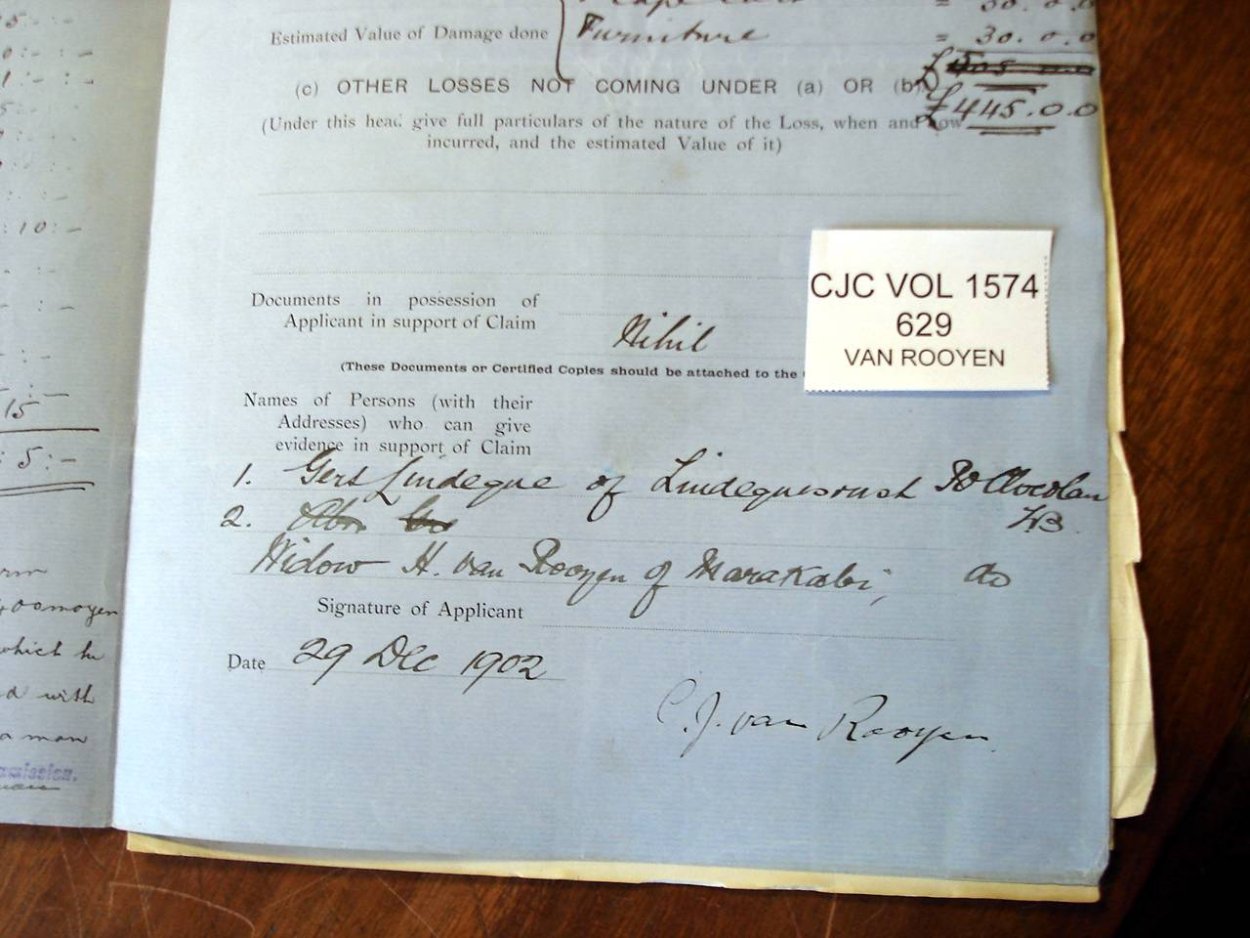 5 :
0 : - : -
1 : - : -
: 10 : -
: -
15
: 5 : -
which he
d with
a man
mission.
= 30. 0. 0
Estimated Value of Damage done Furniture = 30. 0. 0
(c) OTHER LOSSES NOT COMING UNDER (a) OR (b)
£445. 0. 0
(Under this head give full particulars of the nature of the Loss, when and how
incurred, and the estimated Value of it)
Documents in possession of
Applicant in support of Claim Nihil
(These Documents or Certified Copies should be attached to the
CJC VOL 1574
629
VAN ROOYEN
Names of Persons (with their
Addresses) who can give
evidence in support of Claim
1. Gert Lindeque of Lindequesrust PO Clocolan
2.
Widow H. van Rooyen of Marakabi, do
Signature of Applicant
Date 29 Dec 1902
C. J. van Rooyen.